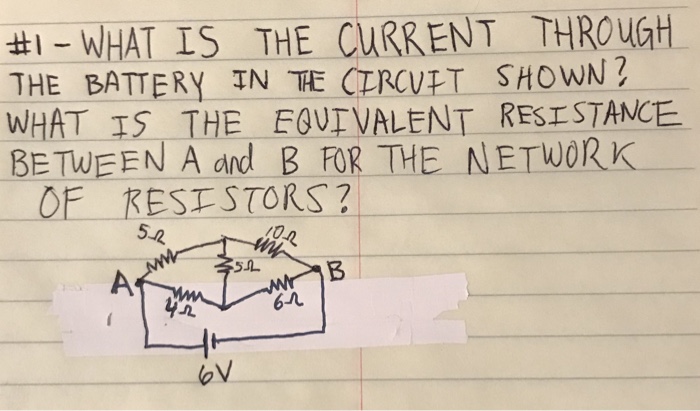 #1 - WHAT IS THE CURRENT THROUGH
THE BATTERY IN THE CIRCUIT SHOWN?
WHAT IS THE EQUIVALENT RESISTANCE
BETWEEN A and B FOR THE NETWORK
OF RESISTORS?
5Ω 10Ω
5Ω
A B
4Ω 6Ω
6V